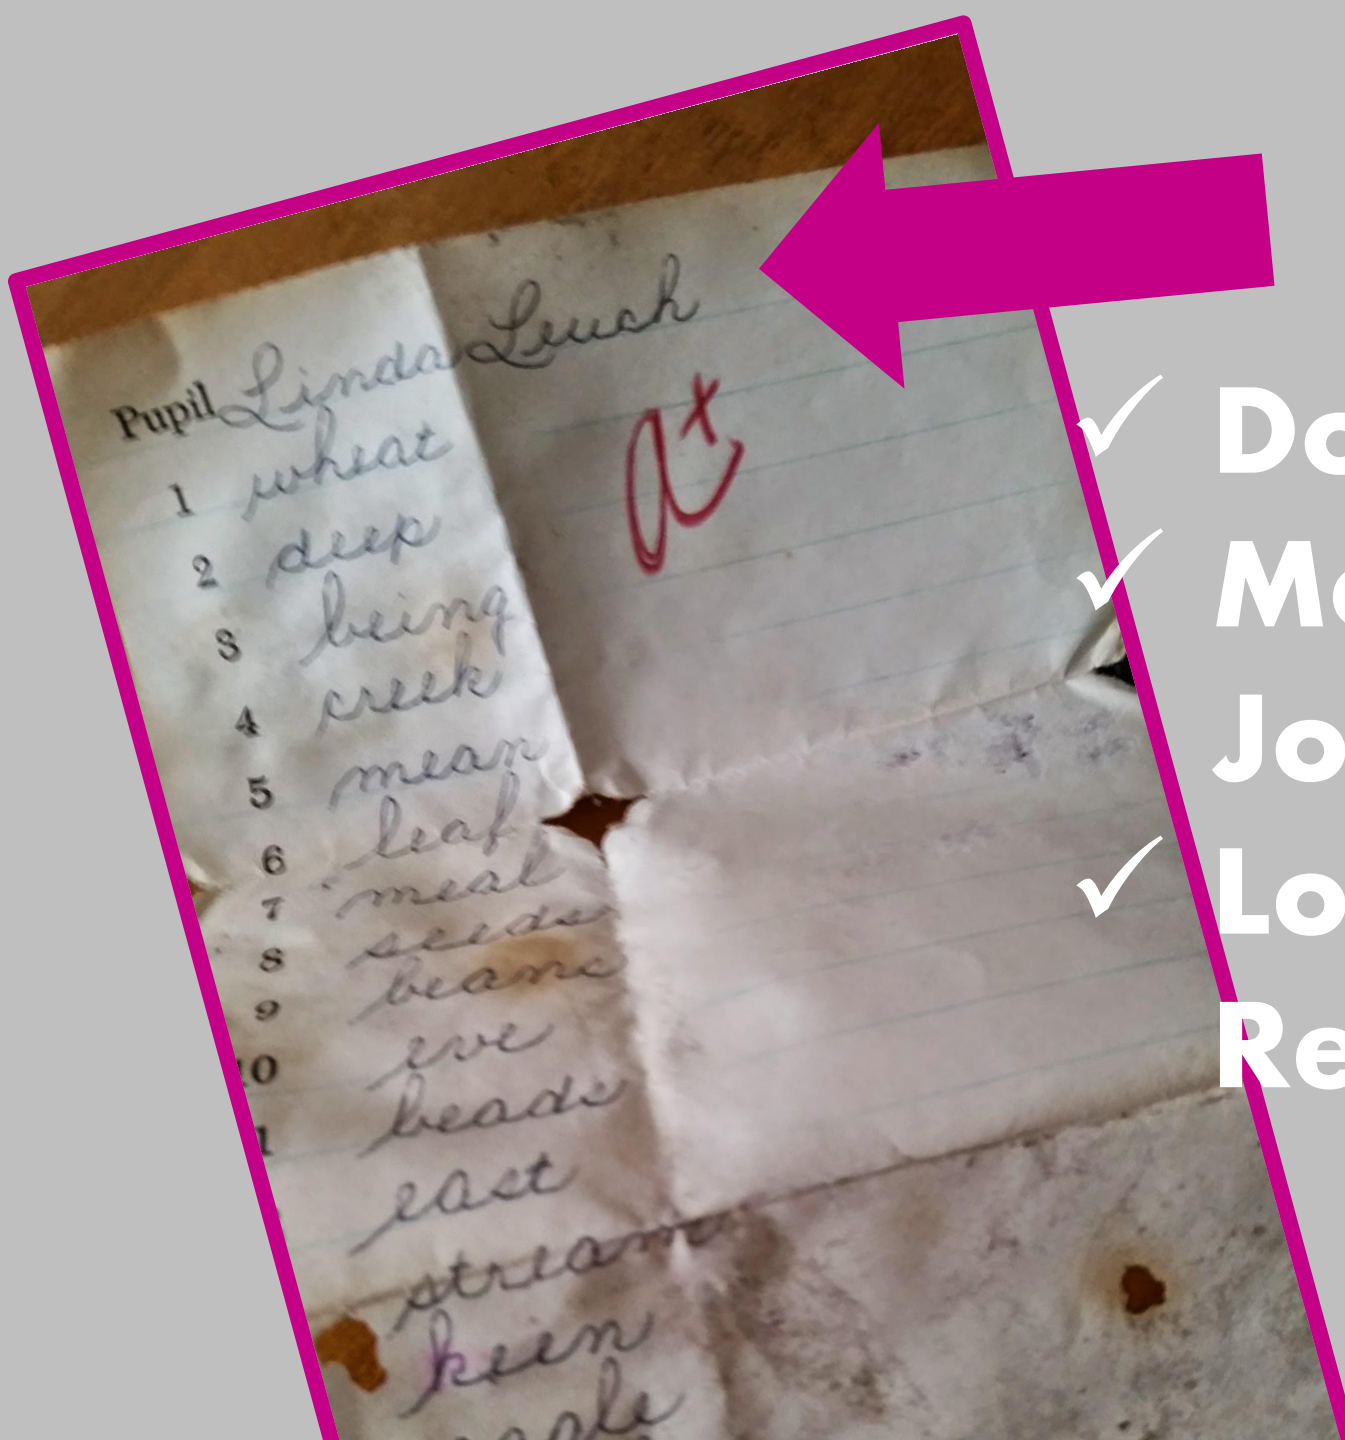 Pupil Linda Leuch
a+
1 wheat
2 deep
3 being
4 creek
5 mean
6 leaf
7 meal
8 seeds
9 beans
10 eve
1 beads
east
stream
keen
Do
Jo
Lo
Re